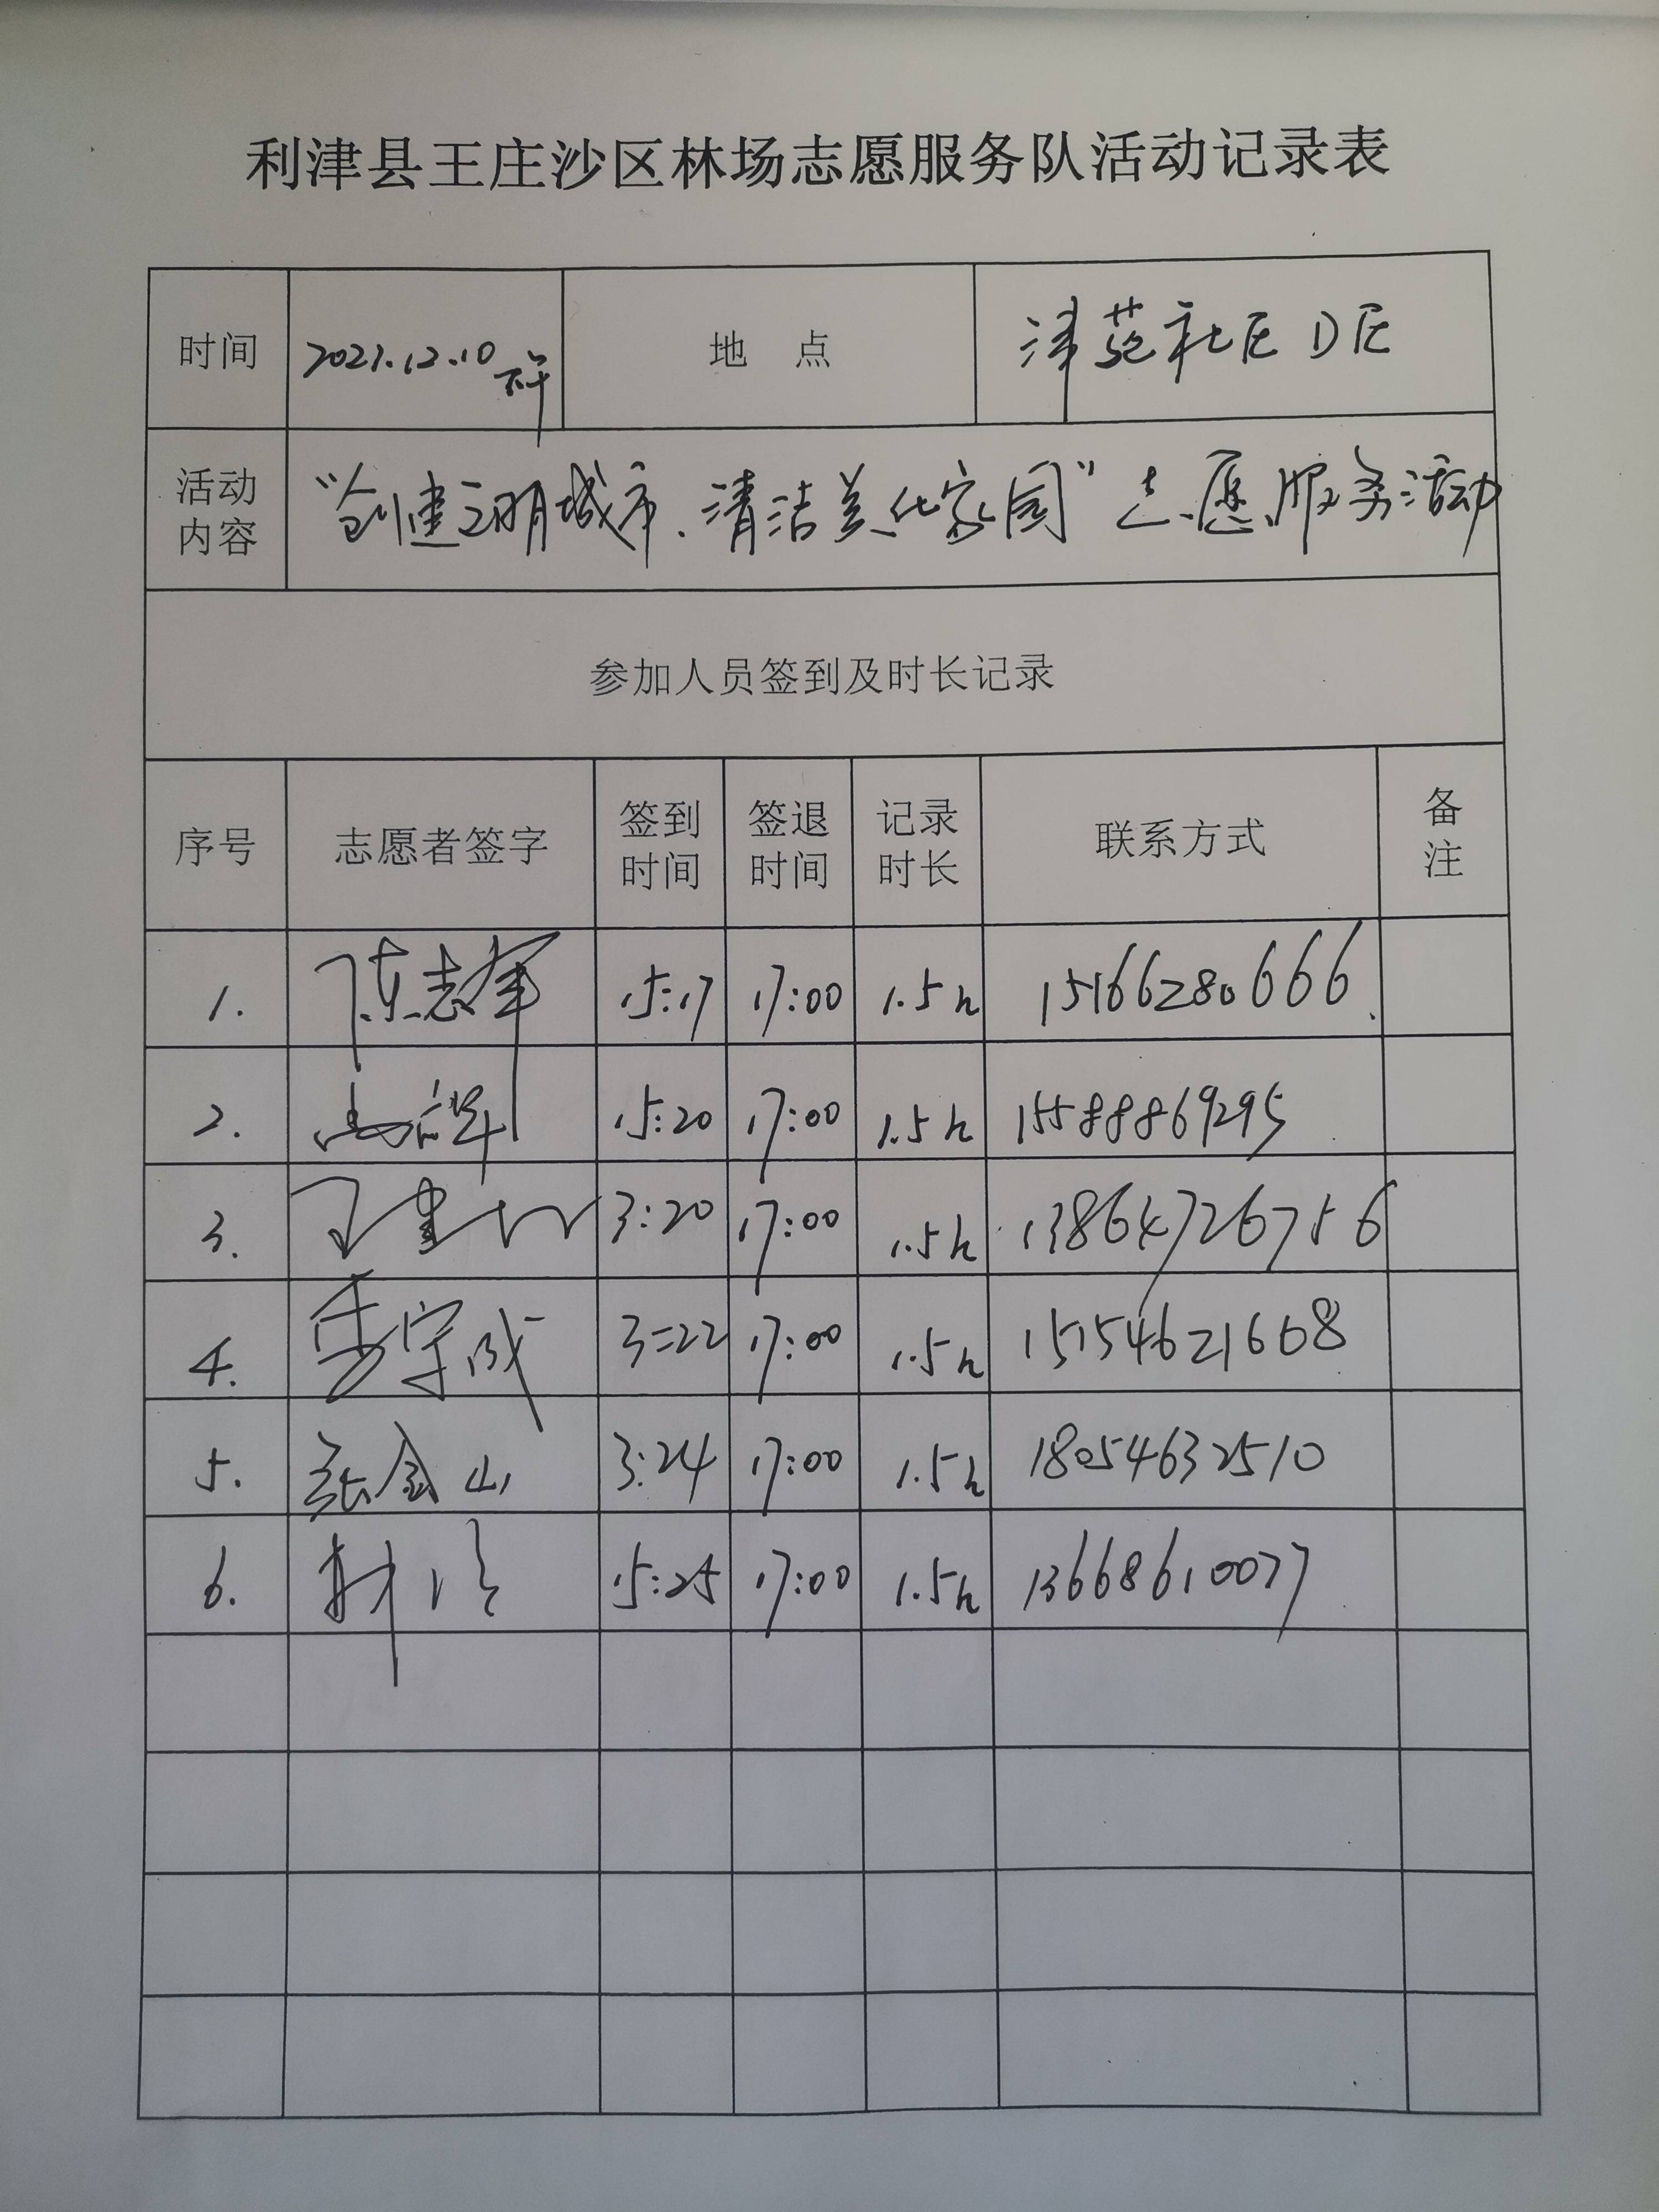 利津县王庄沙区林场志愿服务队活动记录表
时间 2021.12.10 下午 地 点 津苑社区D区
活动内容 “创建文明城市、清洁美化家园”志愿服务活动
参加人员签到及时长记录
序号 志愿者签字 签到时间 签退时间 记录时长 联系方式 备注
1. 陈志军 15:17 17:00 1.5h 15166280666
2. 15:20 17:00 1.5h 15588869295
3. 3:20 17:00 1.5h 13864726756
4. 3:22 17:00 1.5h 15154621668
5. 张金山 3:24 17:00 1.5h 18054632510
6. 15:25 17:00 1.5h 13668610077